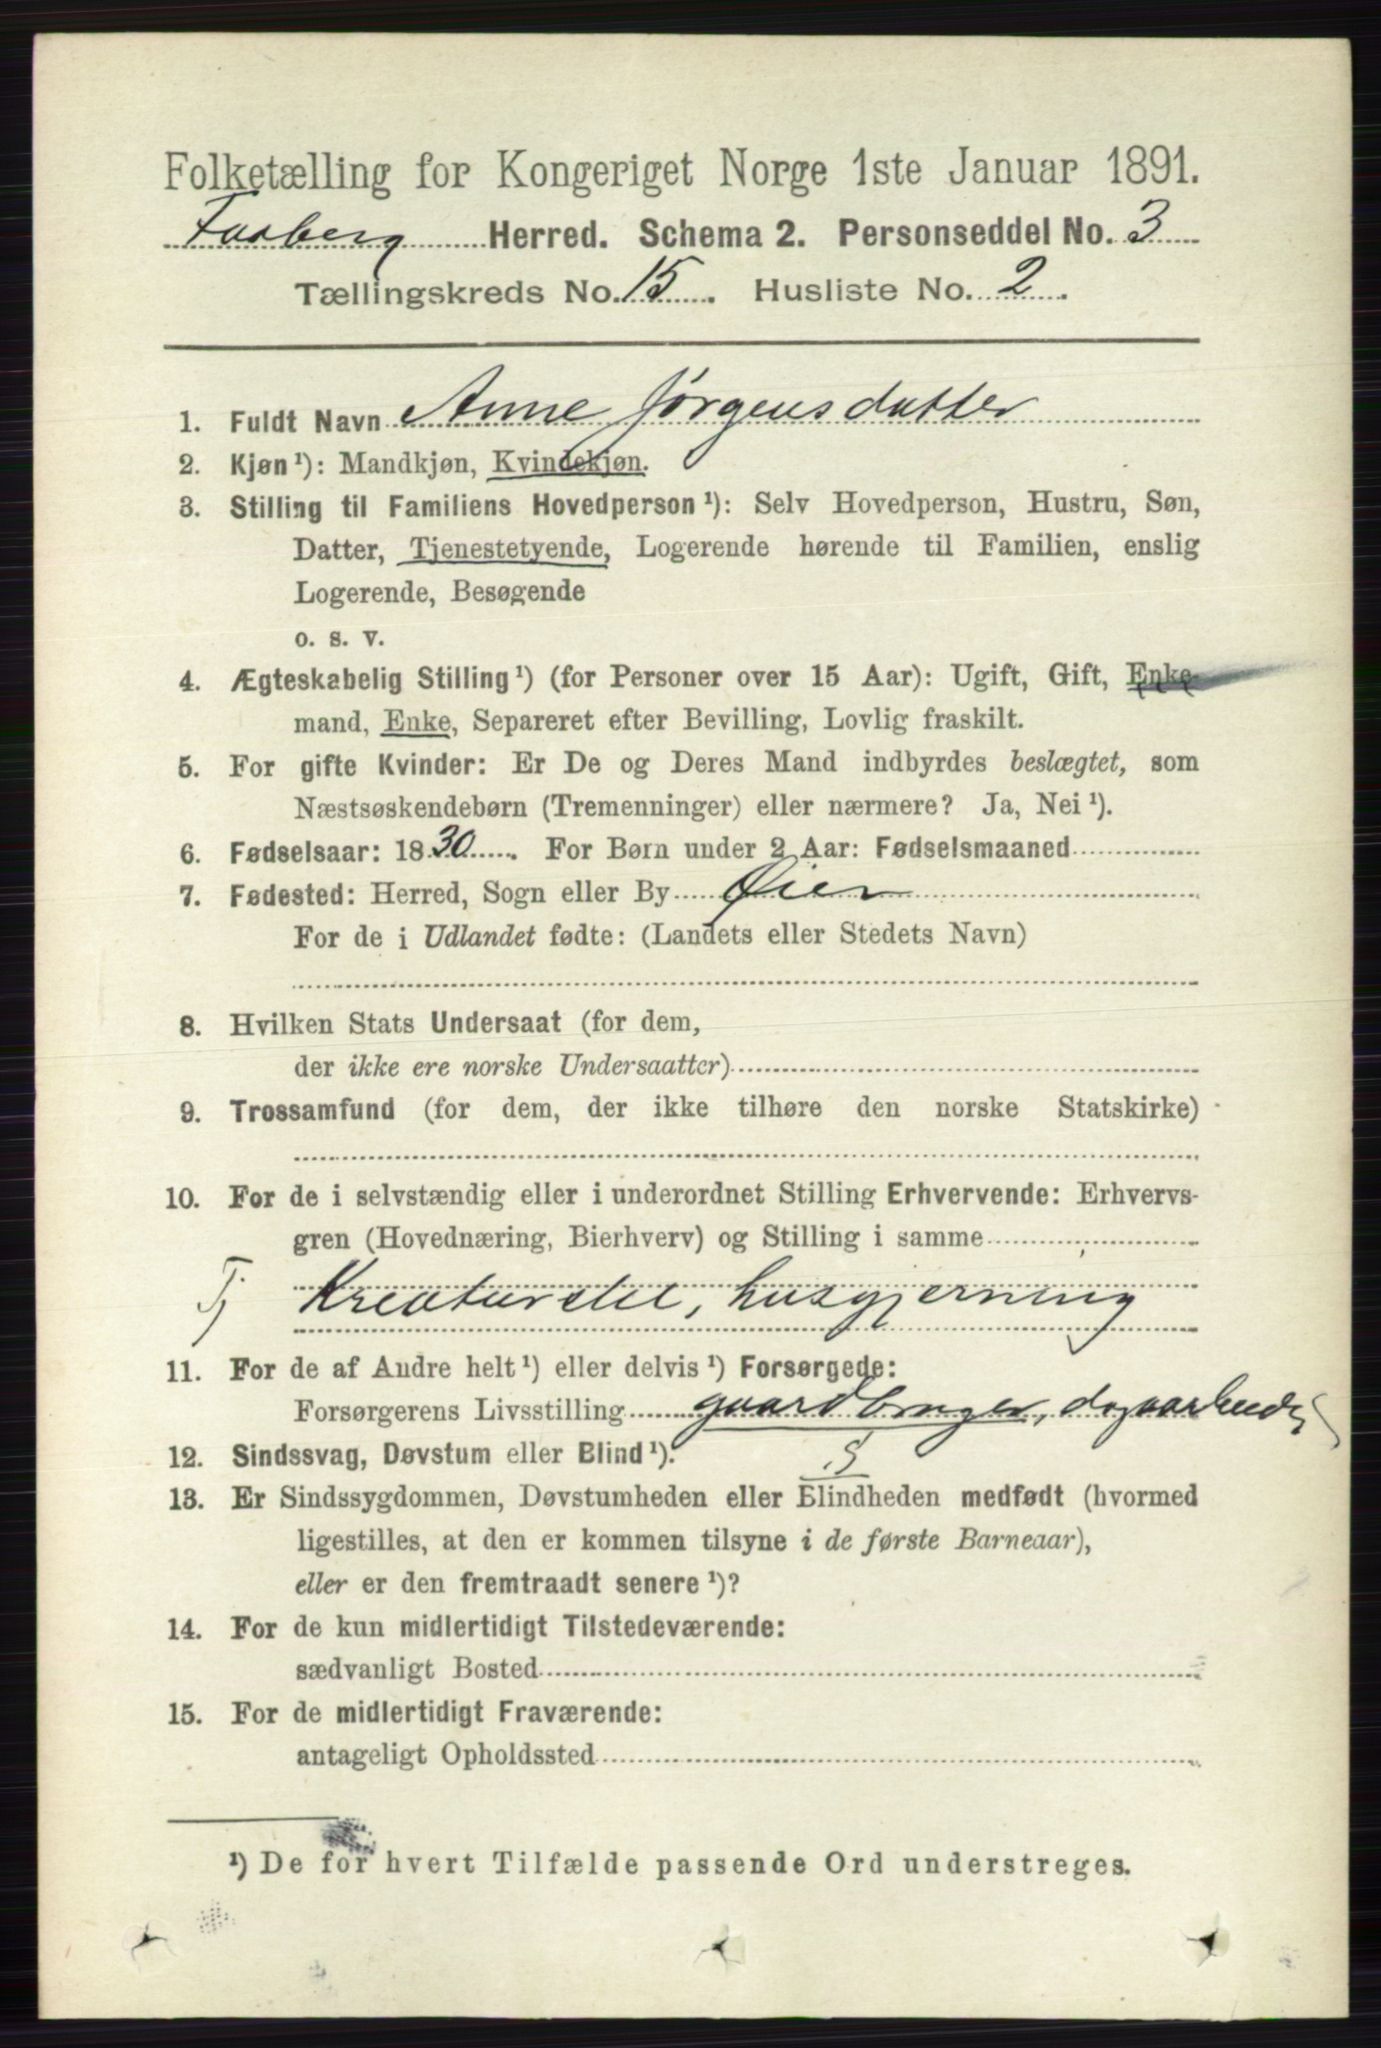 Folketælling for Kongeriget Norge 1ste Januar 1891.
Faaberg Herred. Schema 2. Personseddel No. 3
Tællingskreds No. 15. Husliste No. 2.
1. Fuldt Navn Anne Jørgensdatter
2. Kjøn¹): Mandkjøn, Kvindekjøn.
3. Stilling til Familiens Hovedperson¹): Selv Hovedperson, Hustru, Søn,
Datter, Tjenestetyende, Logerende hørende til Familien, enslig
Logerende, Besøgende
o. s. v.
4. Ægteskabelig Stilling¹) (for Personer over 15 Aar): Ugift, Gift, Enke-
mand, Enke, Separeret efter Bevilling, Lovlig fraskilt.
5. For gifte Kvinder: Er De og Deres Mand indbyrdes beslægtet, som
Næstsøskendebørn (Tremenninger) eller nærmere? Ja, Nei¹).
6. Fødselsaar: 1830. For Børn under 2 Aar: Fødselsmaaned
7. Fødested: Herred, Sogn eller By Øier
For de i Udlandet fødte: (Landets eller Stedets Navn)
8. Hvilken Stats Undersaat (for dem,
der ikke ere norske Undersaatter)
9. Trossamfund (for dem, der ikke tilhøre den norske Statskirke)
10. For de i selvstændig eller i underordnet Stilling Erhvervende: Erhvervs-
gren (Hovednæring, Bierhverv) og Stilling i samme
Tj Kreaturstel, husgjerning
11. For de af Andre helt¹) eller delvis¹) Forsørgede:
Forsørgerens Livsstilling gaardbruger,
12. Sindssvag, Døvstum eller Blind¹). S
13. Er Sindssygdommen, Døvstumheden eller Blindheden medfødt (hvormed
ligestilles, at den er kommen tilsyne i de første Barneaar),
eller er den fremtraadt senere¹)?
14. For de kun midlertidigt Tilstedeværende:
sædvanligt Bosted
15. For de midlertidigt Fraværende:
antageligt Opholdssted
¹) De for hvert Tilfælde passende Ord understreges.